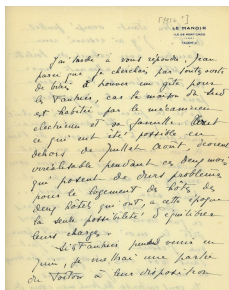 [1950 ?]
LE MANOIR
ILE DE PORT-CROS
J'ai tardé à vous répondre, Jean
parce que je cherchais par toutes sortes
de biais à trouver un gîte pour
les Vauthier, car la maison du sud
est habitée par le mécanicien
électricien et sa famille. Tout
ce qui eut été possible en
dehors de Juillet Août, devient
irréalisable pendant ces deux mois
qui posent de durs problèmes
pour le logement des hôtes des
deux hôtels qui ont, à cette époque
la seule possibilité d'équilibrer
leurs charges.
Si Vauthier venir en
Juin, je mettrai une partie
du à leur disposition